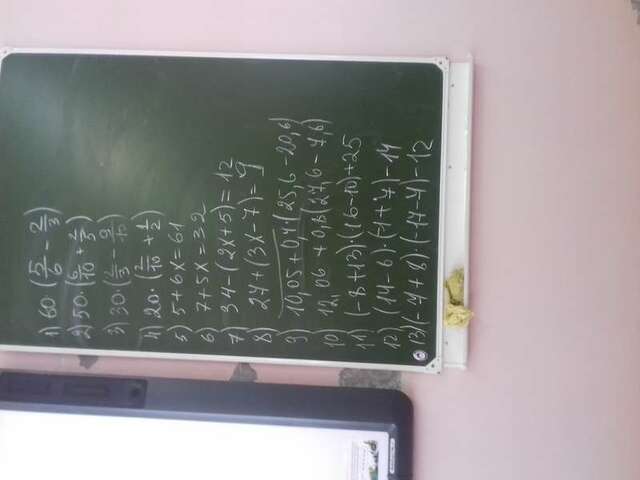 1) 60·(5/6 - 2/3)
2) 50·(6/10 + 2/5)
3) 30·(2/3 - 9/10)
4) 20·(2/10 + 1/2)
5) 5+6x=61
6) 7+5x=32
7) 34-(2x+5)=12
8) 27+(3x-7)=9
9) 10,05+0,4·(25,6-20,6)
10) 12,06+0,8(27,6-7,6)
11) (-8+13)·(16-10)+25
12) (14-6)·(-1+7)-14
13) (-7+8)·(-17-7)-12